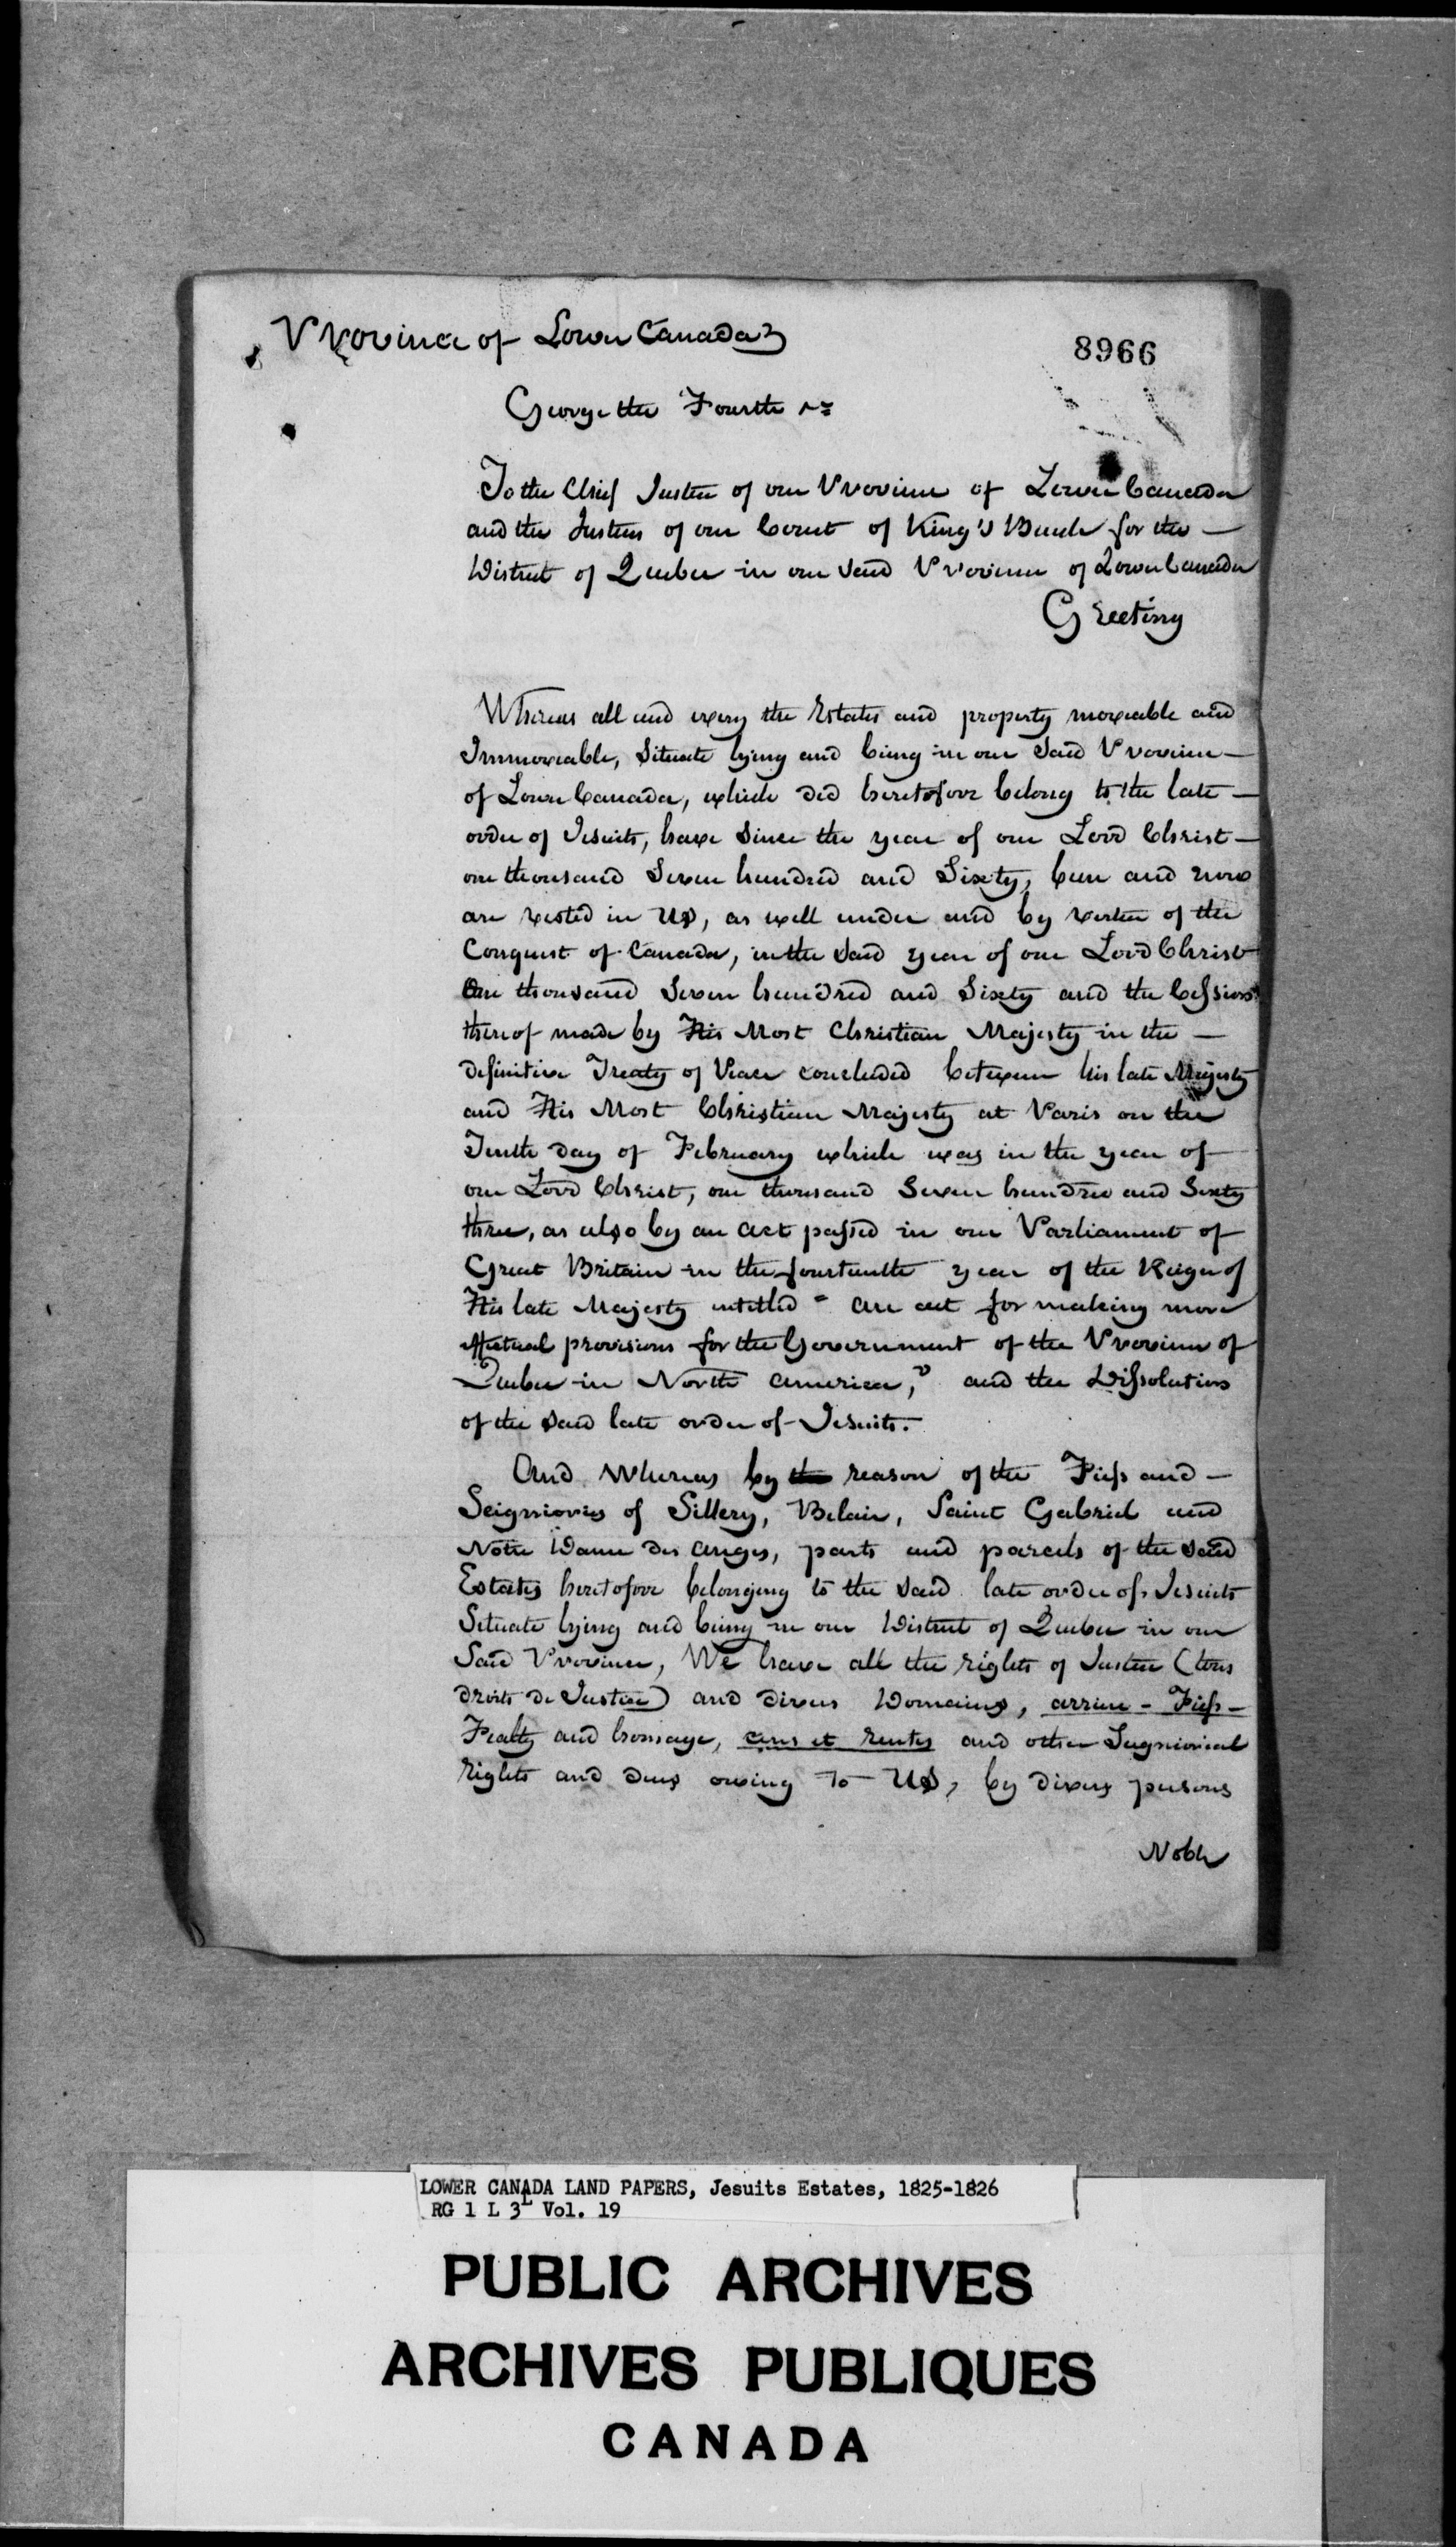 Province of Lower Canada
8966
George the Fourth &c
To the Chief Justice of our Province of Lower Canada
and the Justices of our Court of King's Bench for the —
District of Quebec in our said Province of Lower Canada
Greeting
Whereas all and every the Estates and property moveable and
Immoveable, situate lying and being in our said Province —
of Lower Canada, which did heretofore belong to the late —
order of Jesuits, have since the year of our Lord Christ —
one thousand Seven hundred and Sixty, been and now
are vested in Us, as well under and by virtue of the
Conquest of Canada, in the said year of our Lord Christ
One thousand Seven hundred and Sixty and the Cession
thereof made by His Most Christian Majesty in the —
definitive Treaty of Peace concluded between his late Majesty
and His Most Christian Majesty at Paris on the
Tenth day of February which was in the year of
our Lord Christ, one thousand Seven hundred and Sixty
three, as also by an act passed in our Parliament of
Great Britain in the fourteenth year of the Reign of
His late Majesty intitled " An act for making more
effectual provisions for the Government of the Province of
Quebec in North America," and the Dissolution
of the said late order of Jesuits.
And Whereas by the reason of the Fiefs and —
Seigniories of Sillery, Belair, Saint Gabriel and
Notre Dame des Anges, parts and parcels of the said
Estates heretofore belonging to the said late order of Jesuits
Situate lying and being in our District of Quebec in our
Said Province, We have all the rights of Justice (tous
droits de Justice) and divers Domains, arriere - Fiefs -
Fealty and homage, cens et rentes and other Seigniorial
Rights and dues owing to Us, by divers persons
Noble
LOWER CANADA LAND PAPERS, Jesuits Estates, 1825-1826
RG 1 L 3L Vol. 19
PUBLIC ARCHIVES
ARCHIVES PUBLIQUES
CANADA